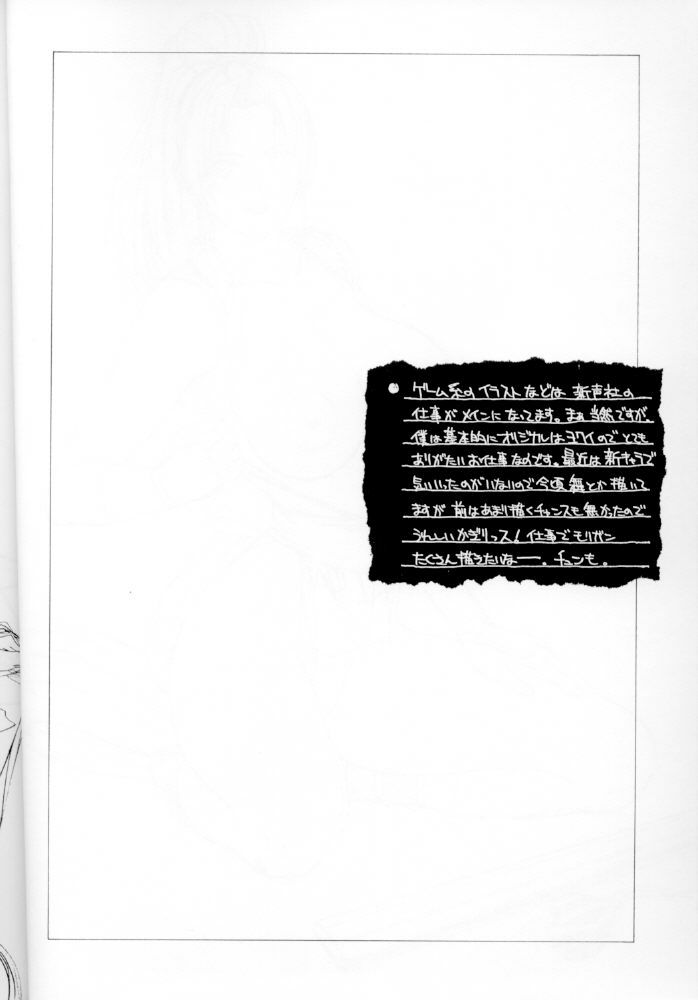 ●ゲーム系のイラストなどは 新声社の
仕事がメインになってます。まぁ当然ですが、
僕は基本的にオリジナルはヨワイのでとても
ありがたいお仕事なのです。最近は新キャラで
気にいったのがいないので今頃舞とか描いて
ますが 前はあまり描くチャンスも無かったので
うれしいかぎりっス！仕事でモリガン
たくさん描きたいなー。チュンも。